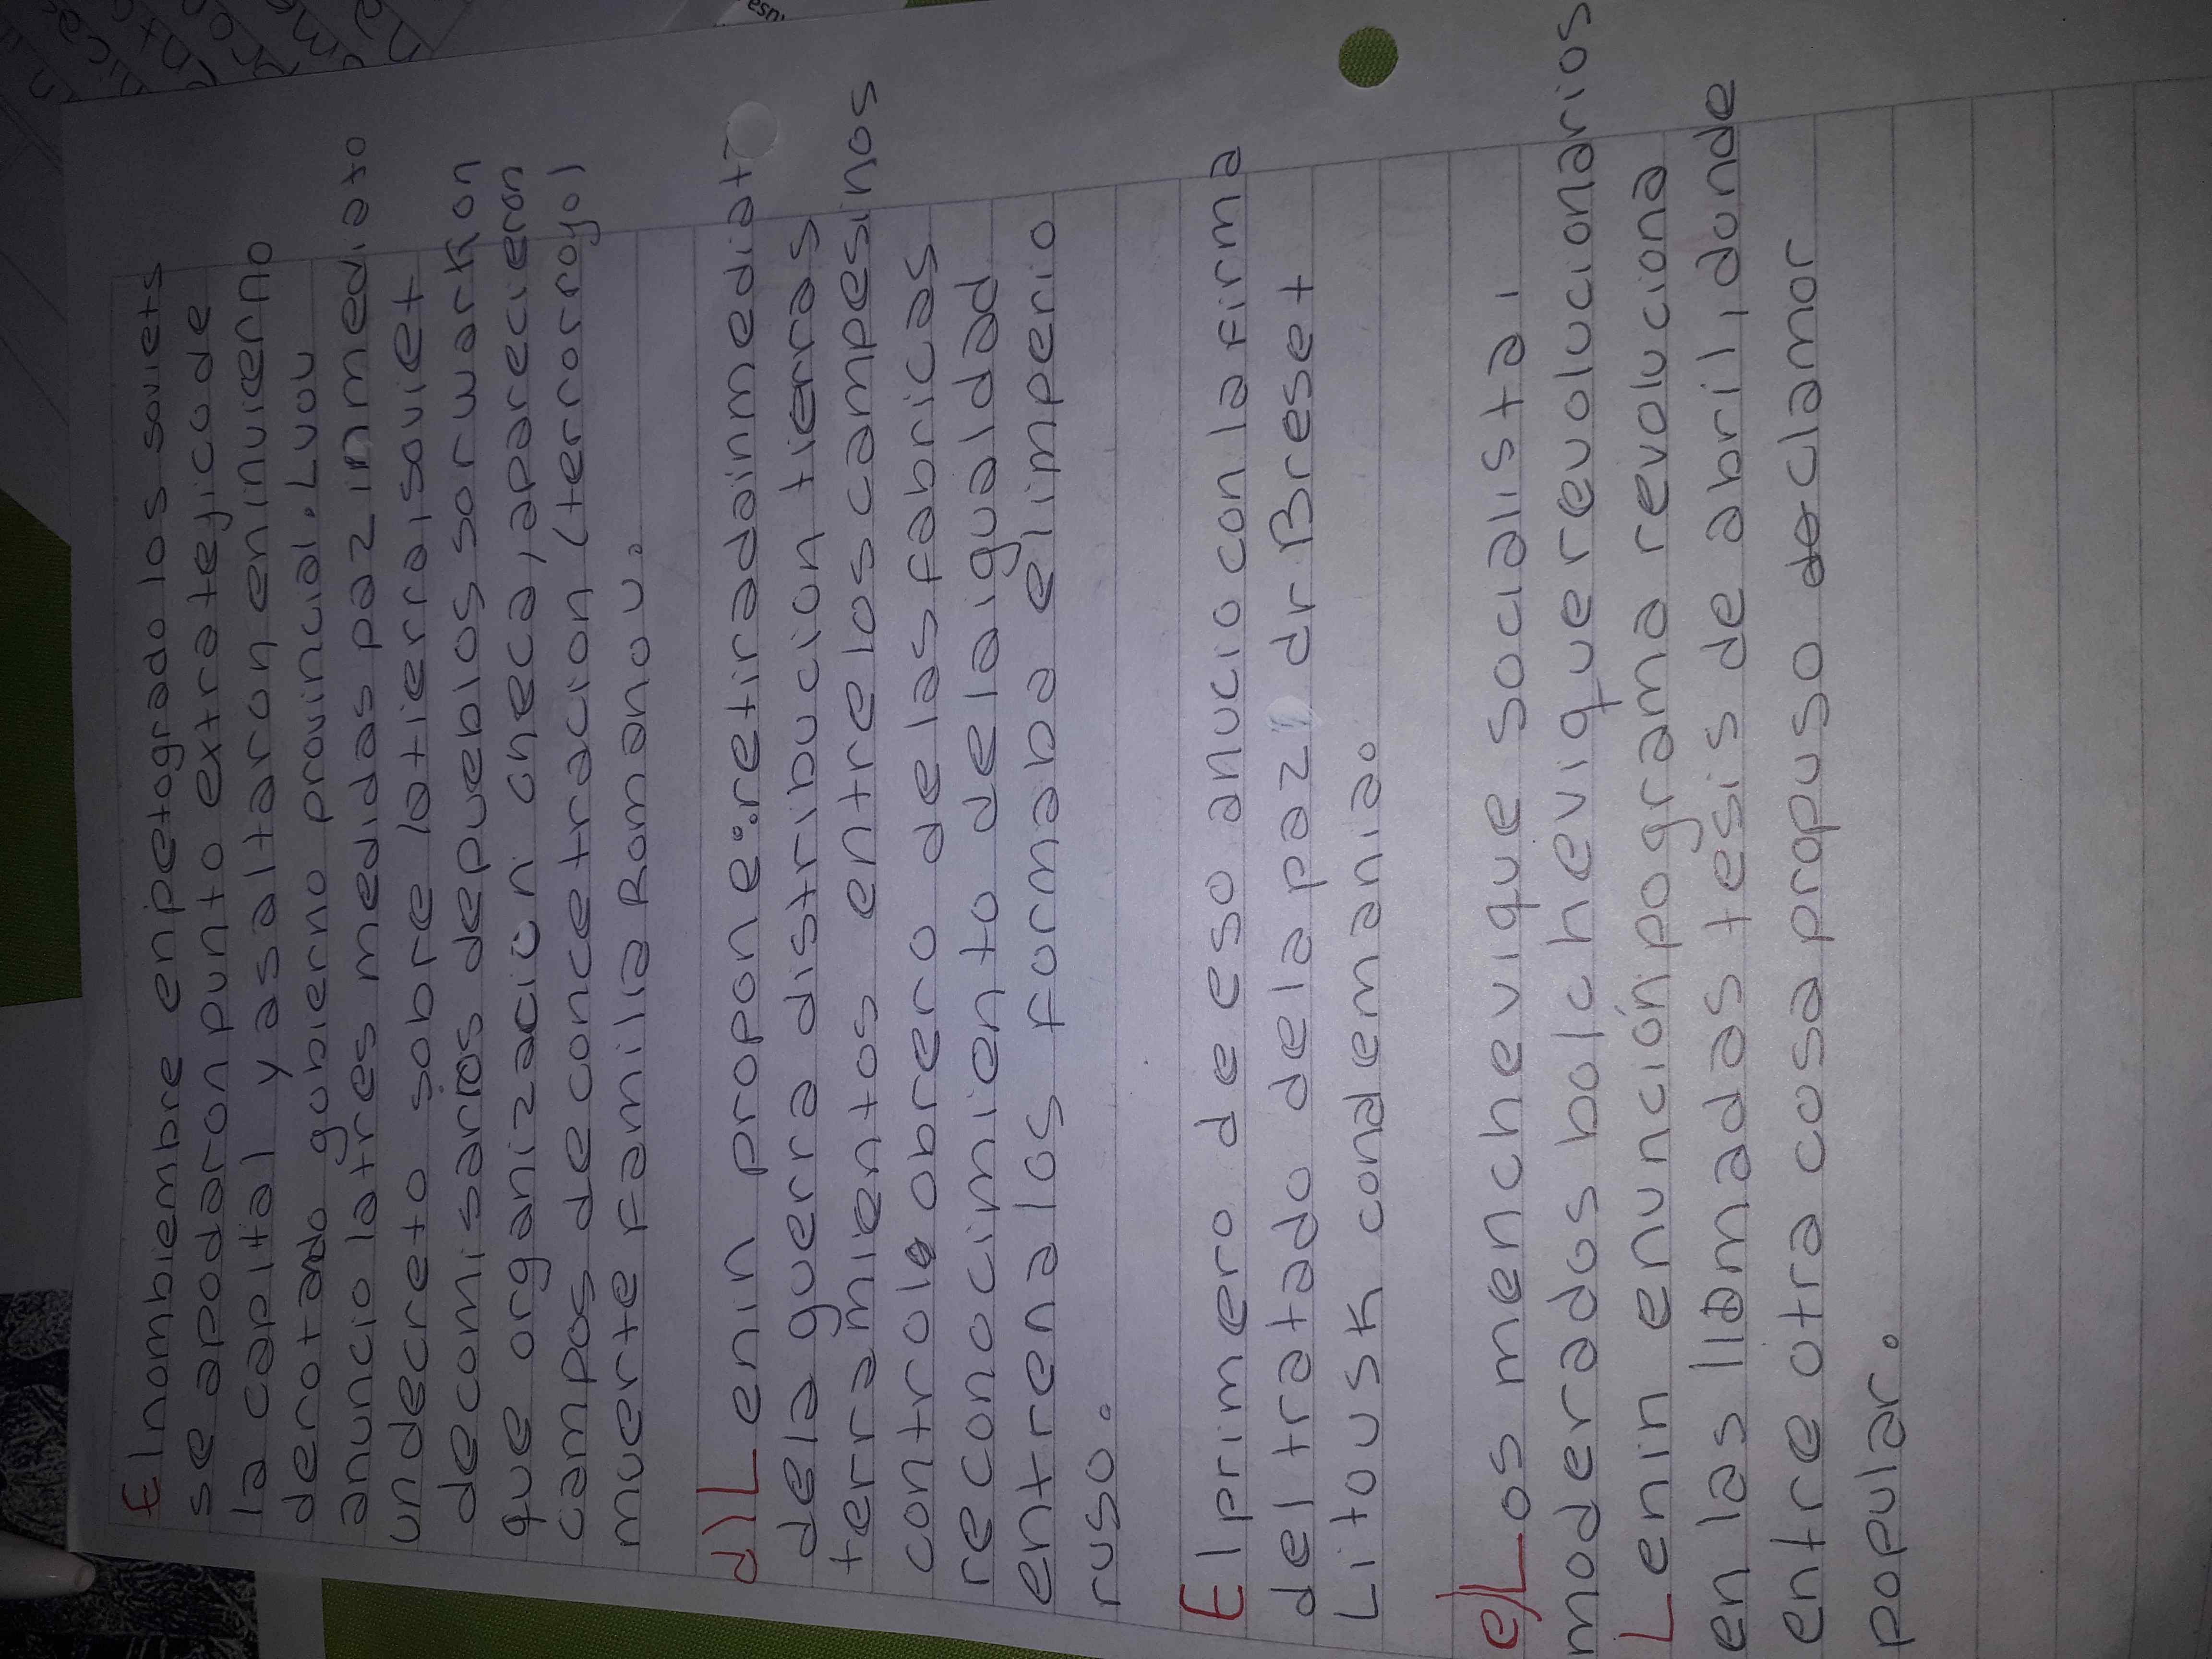 El nombiembre en petogrado los soviets
se apodaron punto extratejico de
la capital y asaltaron en invierno
denotando gobierno provincial. Luou
anuncio la tres medidas paz inmediato
un decreto sobre la tierra, soviet
de comisarios de pueblos sorwarkon
que organizacion checa, aparecieron
campos de concetracion (terror royo)
muerte Familia Romanou.
d) Lenin propone: retirada inmediat
de la guerra distribucion tierras
terramientos entre los campesinos
control obrero de las fabricas
reconocimiento de la igualdad
entrena los formaba el imperio
ruso.
El primero de eso anucio con la firma
del tratado de la paz dr Breset
Litousk con alemania.
e) Los menchevique socialista,
moderados bolchevique revolucionarios
Lenin enunción pograma revoluciona
en las llamadas tesis de abril, dunde
entre otra cosa propuso de clamor
popular.